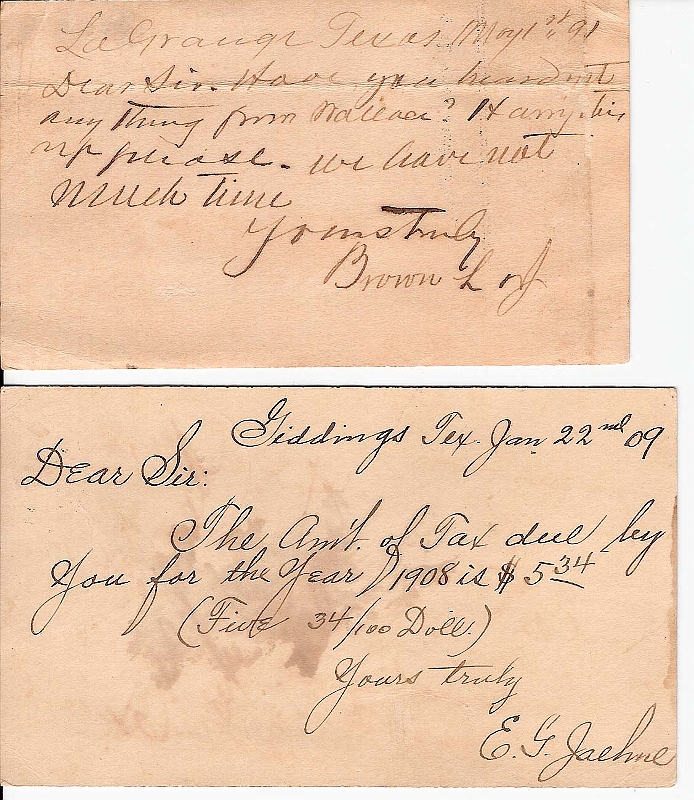 LaGrange Texas May 1st 91
Dear Sir. Have you heard not
any thing from Wallace? Hurry this
up please. we have not
much time
Yours truly
Brown L
Giddings Tex. Jan 22nd 09
Dear Sir:
The Am't. of Tax due by
You for the Year 1908 is $ 5 34
(Five 34/100 Doll.)
Yours truly
E. G. Jaehne